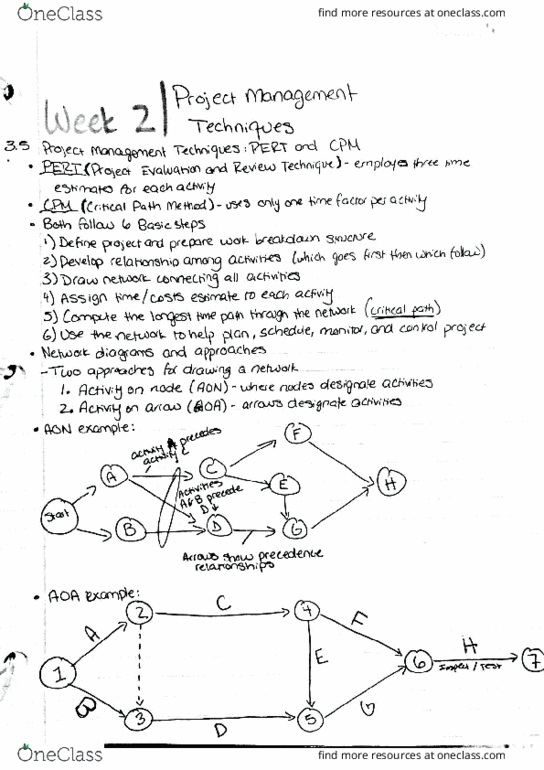 OneClass
find more resources at oneclass.com
Week 2
Project Management
Techniques
3.5 Project Management Techniques: PERT and CPM
• PERT (Project Evaluation and Review Technique) - employs three time
estimates for each activity
• CPM (Critical Path Method) - uses only one time factor per activity
- Both follow 6 Basic steps
1) Define project and prepare work breakdown structure
2) Develop relationship among activities (which goes first then which follow)
3) Draw network connecting all activities
4) Assign time/costs estimate to each activity
5) Compute the longest time path through the network (critical path)
6) Use the network to help plan, schedule, monitor, and control project
• Network diagrams and approaches
- Two approaches for drawing a network
1. Activity on node (AON) - where nodes designate activities
2. Activity on arrow (AOA) - arrows designate activities
• AON example:
activity A precedes
activity C
F
A
C
Activities
A & B precede
D
E
H
Start
B
D
G
Arrows show precedence
relationships
• AOA example:
2
C
4
A
F
E
H
1
6
Inspect / Test
7
B
G
3
D
5
OneClass
find more resources at oneclass.com